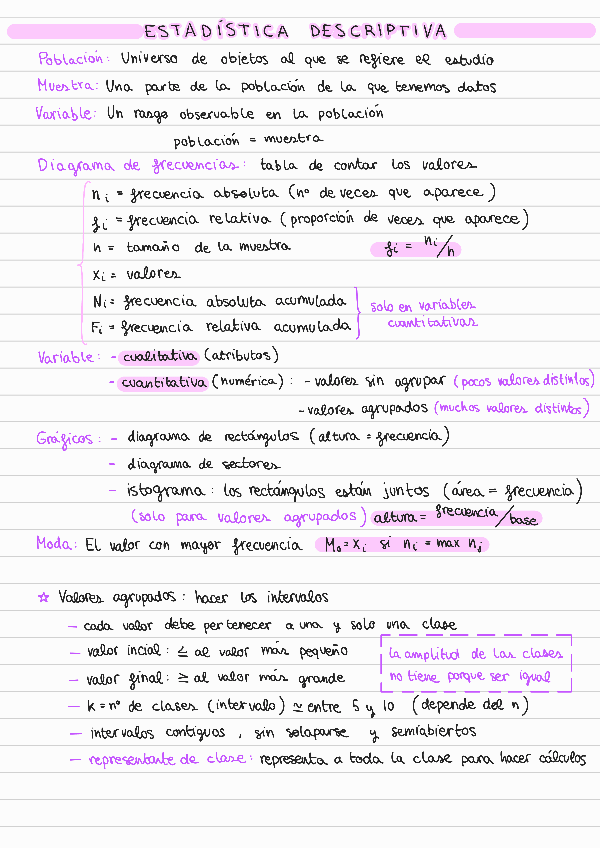 ESTADÍSTICA DESCRIPTIVA
Población: Universo de objetos al que se refiere el estudio
Muestra: Una parte de la población de la que tenemos datos
Variable: Un rasgo observable en la población
población = muestra
Diagrama de frecuencias: tabla de contar los valores
ni = frecuencia absoluta (nº de veces que aparece)
fi = frecuencia relativa (proporción de veces que aparece)
n = tamaño de la muestra fi = ni/n
xi = valores
Ni = frecuencia absoluta acumulada
Fi = frecuencia relativa acumulada
solo en variables
cuantitativas
Variable: - cualitativa (atributos)
- cuantitativa (numérica): - valores sin agrupar (pocos valores distintos)
- valores agrupados (muchos valores distintos)
Gráficos: - diagrama de rectángulos (altura = frecuencia)
- diagrama de sectores
- istograma: los rectángulos están juntos (área = frecuencia)
(solo para valores agrupados) altura = frecuencia/base
Moda: El valor con mayor frecuencia Mo = xi si ni = max nj
☆ Valores agrupados: hacer los intervalos
- cada valor debe pertenecer a una y solo una clase
- valor incial: ≤ al valor más pequeño
- valor final: ≥ al valor más grande
la amplitud de las clases
no tiene porque ser igual
- k = nº de clases (intervalo) ≃ entre 5 y 10 (depende del n)
- intervalos contiguos, sin solaparse y semiabiertos
- representante de clase: representa a toda la clase para hacer cálculos